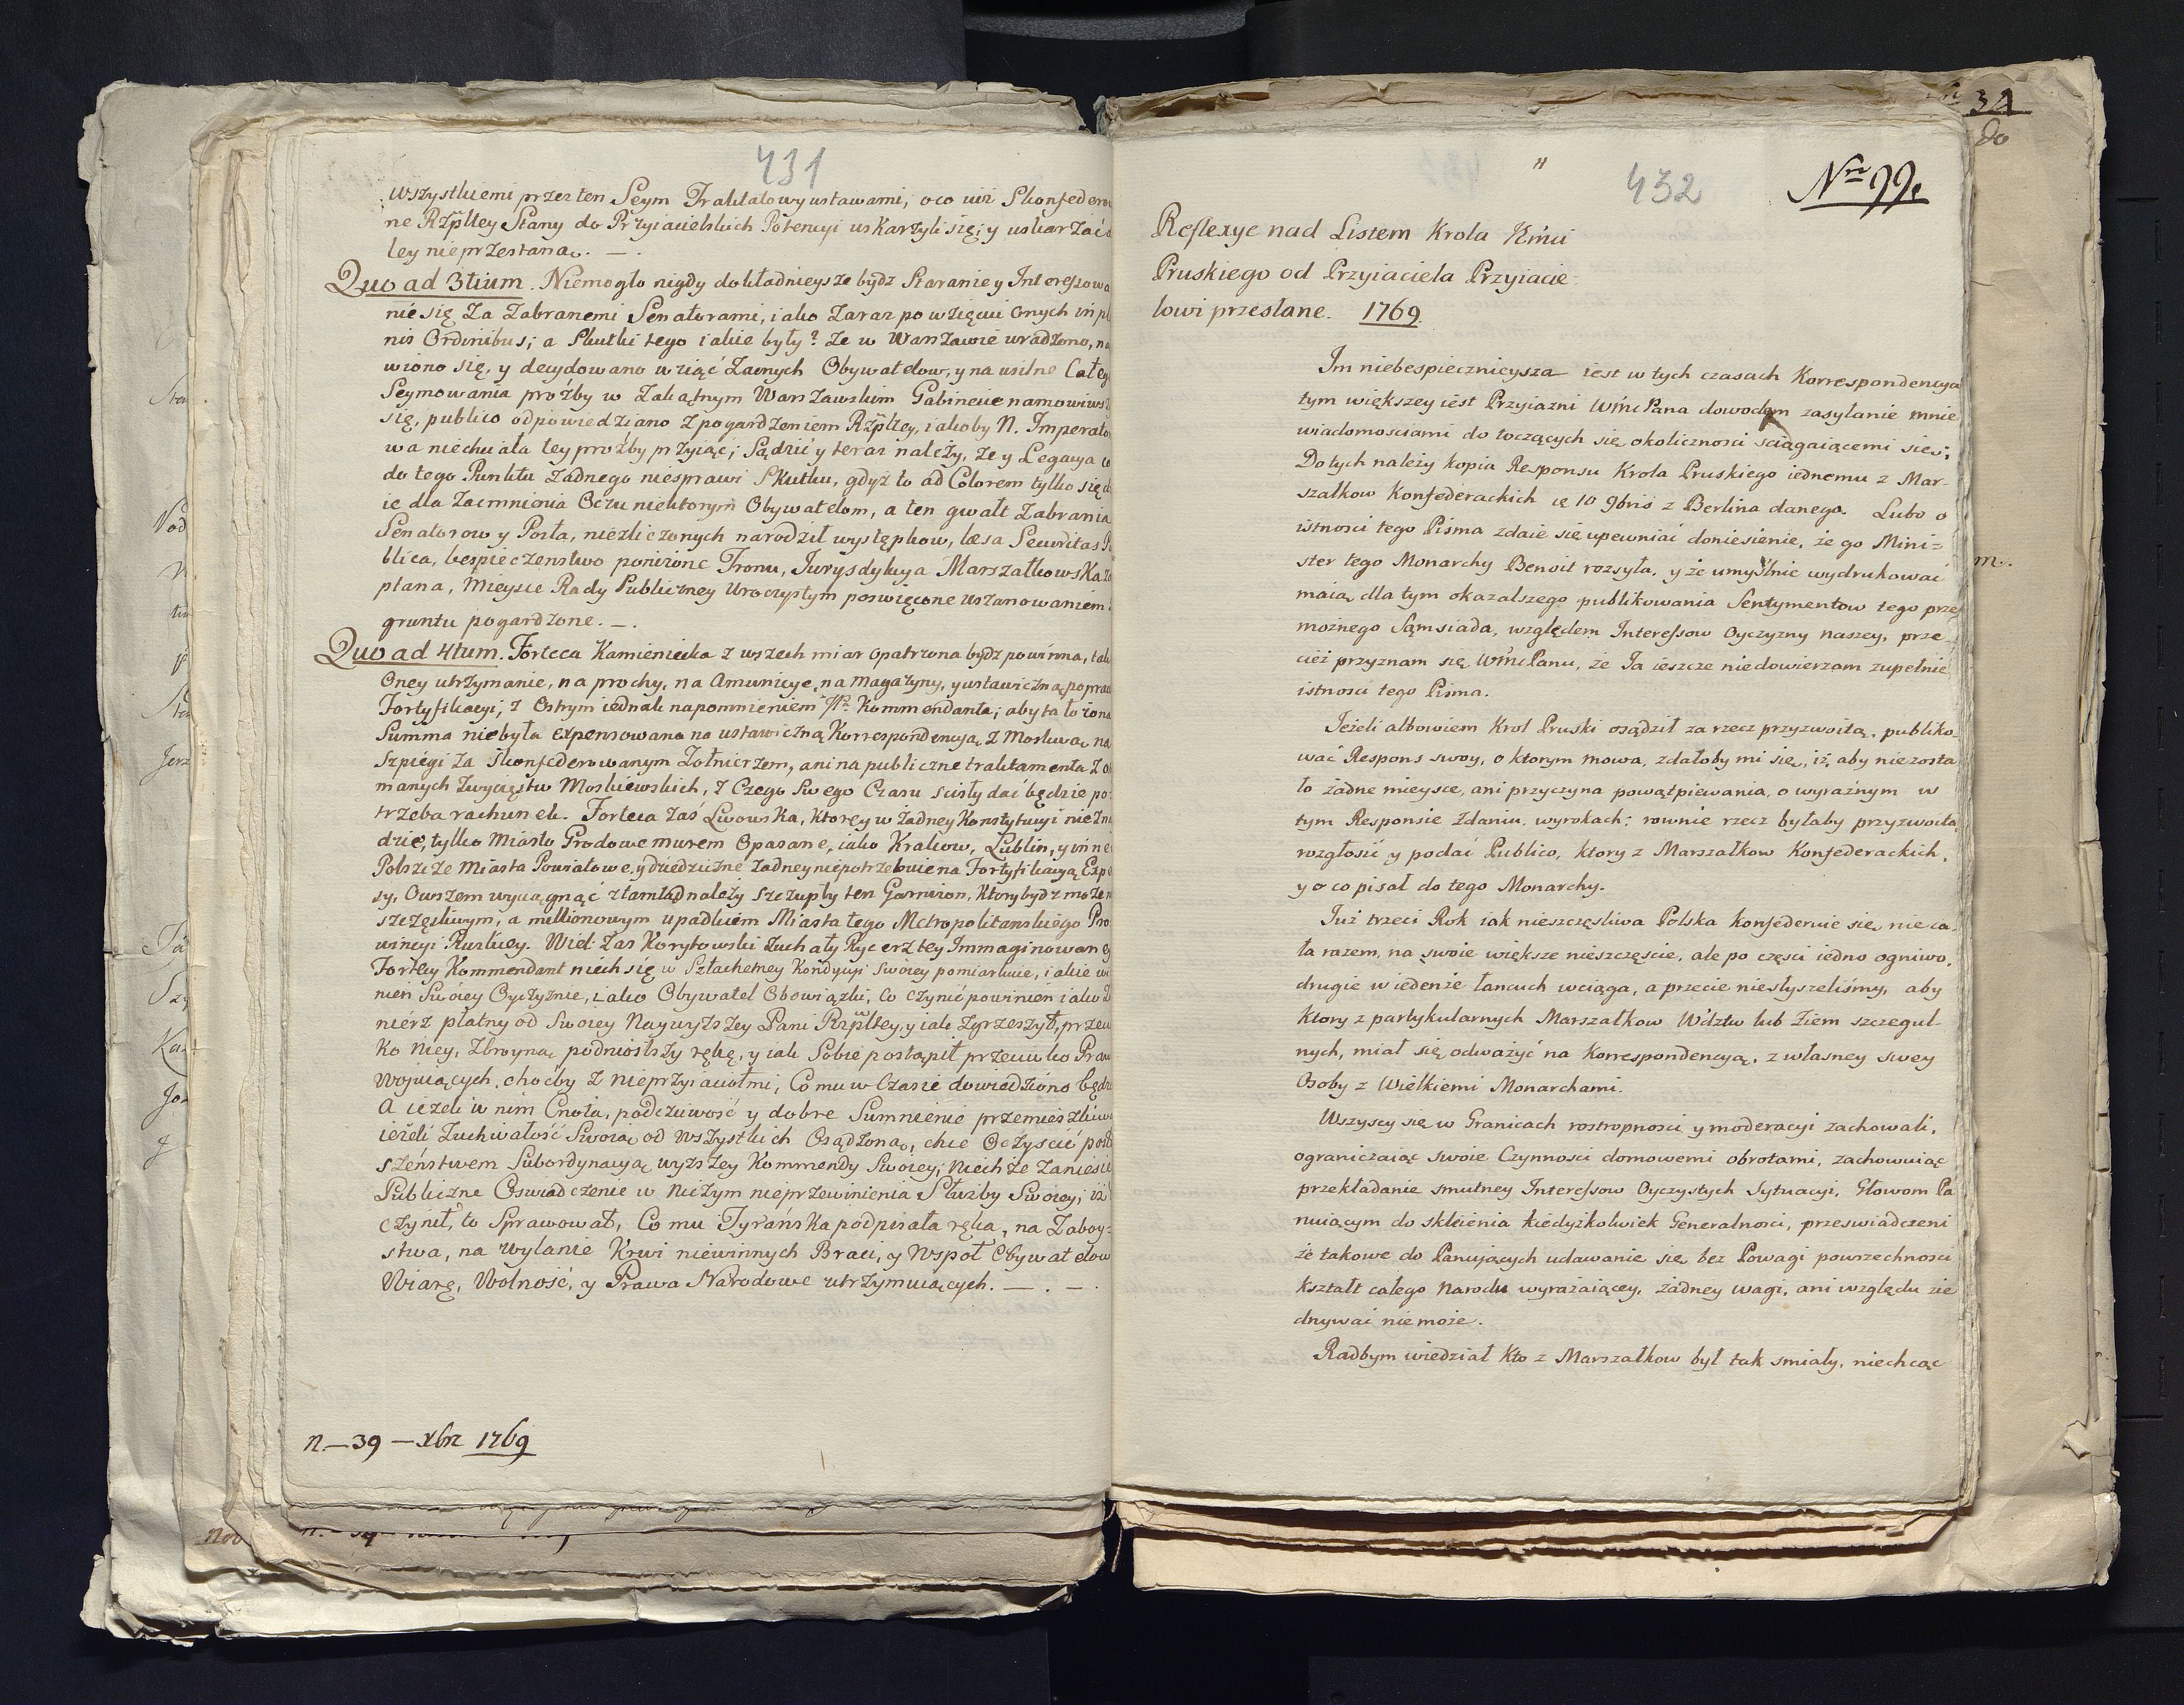 431
wszystkiemi przez ten Seym Traktatowy ustawami, oco iuż Skonfedero
ne Rzpltey Stany do Przyiacielskich Potencyi uskarżyli się; y uskarżać
tey nieprzestaną. —.
Quo ad 3tium. Niemogło nigdy dokładnieysze bydz Staranie y Interessowa
nie się Za Zabranemi Senatorami, iako Zaraz po wzięciu onych in ple
nis Ordinibus; a Skutki tego iakie były? że w Warszawie uradzono, na
wiono się, y decydowano wziąć Zacnych Obywatelow, y na usilne Całeg
Seymowania proźby w Zakątnym Warszawskim Gabinecie namowiwsz
się, publico odpowiedziano z pogardzeniem Rzpltey, iakoby N. Imperato
wa niechciała tey proźby przyiąć; Sądzić y teraz należy, że y Legacya co
do tego Punktu żadnego niesprawi Skutku, gdyż to ad Colorem tylko się d
ie dla Zacmnienia Oczu niektorym Obywatelom, a ten gwałt Zabrania
Senatorow y Posła, niezliczonych narodził występkow, læsa Securitas Pu
blica, bespieczenstwo poniżone Tronu, Jurysdykcya Marszałkowska
ptana, Mieysce Rady Publiczney Uroczystym poswięcone uszanowaniem
gruntu pogardzone. —.
Quo ad 4tum. Forteca Kamieniecka z wszech miar opatrzona bydz powinna, tak
Oney utrzymanie, na prochy, na Amunicye, na magazyny, y ustawiczną poprawę
Fortyfikacyi, z Ostrym iednak napomnieniem JP. Kommendanta; aby ta łożona
Summa niebyła expensowana na ustawiczną Korrespondencyą z Moskwą na
Szpiegi za Skonfederowanym Żołnierzem, ani na publiczne traktamenta z o
manych Zwycięstw Moskiewskich, z Czego Swego Czasu scisły dać będzie po-
trzeba rachunek. Forteca zaś Lwowska, ktorey w żadney Konstytucyi niezna
dzie, tylko Miasto Grodowe murem Opasane, iako Krakow, Lublin, y inne
Polszcze Miasta Powiatowe, y dziedziczne żadney niepotrzebuie na Fortyfikacyą Expe
sy, Owszem wyciągnąć ztamtąd należy szczupły ten Garnizon, Ktory bydz może n
szczęsliwym, a millionowym upadkiem Miasta tego Metropolitanskiego Pro
wincyi Ruskiey. Wiel: Zas Korytowski Zuchały Rycerz tey Immaginowaney
Fortecy Kommendant niech się w Szlachetney Kondycyi swoiey pomiarkuie, iakie wi
nien Swoiey Oyczyznie, iako Obywatel Obowiązki, Co Czynić powinien iako Żo
nierz płatny od Swoiey Naywyższey Pani Rzpltey, y iak Zgrzeszył, przeci
ko niey, Zbroyną podniosłszy rękę, y iak Sobie postąpił przeciwko Praw
woiuiących, choćby z nieprzyiaciołmi, Co mu w Czasie dowiedziono będzie
A ieżeli w nim Cnota, podcziwość y dobre Sumnienie przemieszkiwa
ieżeli Zuchwałość Swoią od wszystkich Osądzoną, chce Oczyscić posłu
szeństwem Subordynacyą wyższey Kommendy Swoiey; niechże zaniesie
Publiczne Oswiadczenie w niczym nieprzewinienia Służby Swoiey; iż
czynił, to Sprawował, Co mu Tyrańska podpisała ręka, na Zaboy-
stwa, na wylanie Krwi niewinnych Braci, y Wspoł Obywatelow
Wiarę, Wolność, y Prawa Narodowe utrzymuiących. — . — .
n.—39—xbr 1769
432
Nro 99.
Reflexye nad Listem Krola JEmci
Pruskiego od Przyiaciela Przyiacie-
lowi przesłane. 1769.
Im niebespiecznieysza iest w tych czasach Korrespondencya
tym większey iest Przyiazni WmcPana dowodem zasyłanie mnie
wiadomosciami do toczących się okolicznosci sciągaiącemi się;
Do tych należy kopia Responsu Krola Pruskiego iednemu z Mar-
szałkow Konfederackich ię 10 9bris z Berlina danego. Lubo o
istnosci tego Pisma zdaie się upewniać doniesienie, że go Mini=
ster tego Monarchy Benoit rozsyła, y że umyslnie wydrukować
maią dla tym okazalszego publikowania Sentymentow tego prze
możnego Sąmsiada, względem Interessow Oyczyzny naszey, prze-
cież przyznam się WmcPanu, że Ja ieszcze niedowierzam zupełnie
istnosci tego Pisma.
Jeżeli albowiem Krol Pruski osądził za rzecz przyzwoitą, publiko-
wać Respons swoy, o ktorym mowa, zdałoby mi się, iż, aby niezosta
ło żadne mieysce, ani przyczyna powątpiewania, o wyraznym w
tym Responsie Zdaniu, wyrokach; rownie rzecz byłaby przyzwoita,
rozgłosić y podać Publico, ktory z Marszałkow Konfederackich,
y o co pisał do tego Monarchy.
Już trzeci Rok iak nieszczęsliwa Polska konfederuie się, nie ca-
ła razem, na swoie większe nieszczęscie, ale po częsci iedno ogniwo,
drugie w iedenże łancuch wciąga, a przecie niesłyszeliśmy, aby
ktory z partykularnych Marszałkow Wdztw lub Ziem szczegul-
nych, miał się odważyć na Korrespondencyą, z własney swey
Osoby z Wielkiemi Monarchami.
Wszyscy się w Granicach rostropnosci y moderacyi zachowali,
ograniczaiąc swoie Czynnosci domowemi obrotami, zachowuiąc
przekładanie smutney Interessow Oyczystych Sytuacyi, Głowom Pa
nuiącym do sklecenia kiedyżkolwiek Generalnosci, przeswiadczeni
że takowe do Panujących udawanie się bez Powagi powszechnosci
kształt całego Narodu wyrażaiącey, żadney wagi, ani względu zie
dnywać niemoże.
Radbym wiedział Kto z Marszałkow był tak smiały, niechcąc